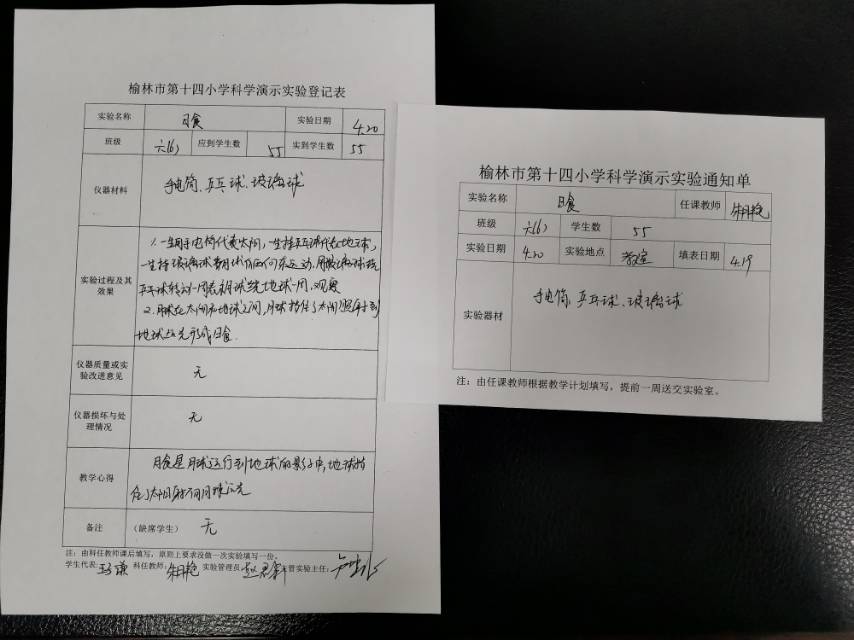 榆林市第十四小学科学演示实验登记表
实验名称 日食 实验日期 4.20
班级 六(6) 应到学生数 55 实到学生数 55
仪器材料 手电筒、乒乓球、玻璃球
实验过程及其效果
1. 一生用手电筒代表太阳，一生持乒乓球代表地球，
一生持玻璃球
乒乓球转动一周表月球绕地球一周，观察
2. 月球在太阳和地球之间，月球挡住了太阳照射到
地球上光形成日食.
仪器质量或实验改进意见 无
仪器损坏与处理情况 无
教学心得
月食是月球运行到地球的影子中，地球挡
住了太阳射向月球的光
备注 （缺席学生） 无
注：由科任教师课后填写，原则上要求没做一次实验填写一份。
学生代表: 科任教师: 朱月艳 实验管理员: 主管实验主任:
榆林市第十四小学科学演示实验通知单
实验名称 日食 任课教师 朱月艳
班级 六(6) 学生数 55
实验日期 4.20 实验地点 教室 填表日期 4.19
实验器材 手电筒、乒乓球、玻璃球
注：由任课教师根据教学计划填写，提前一周送交实验室。